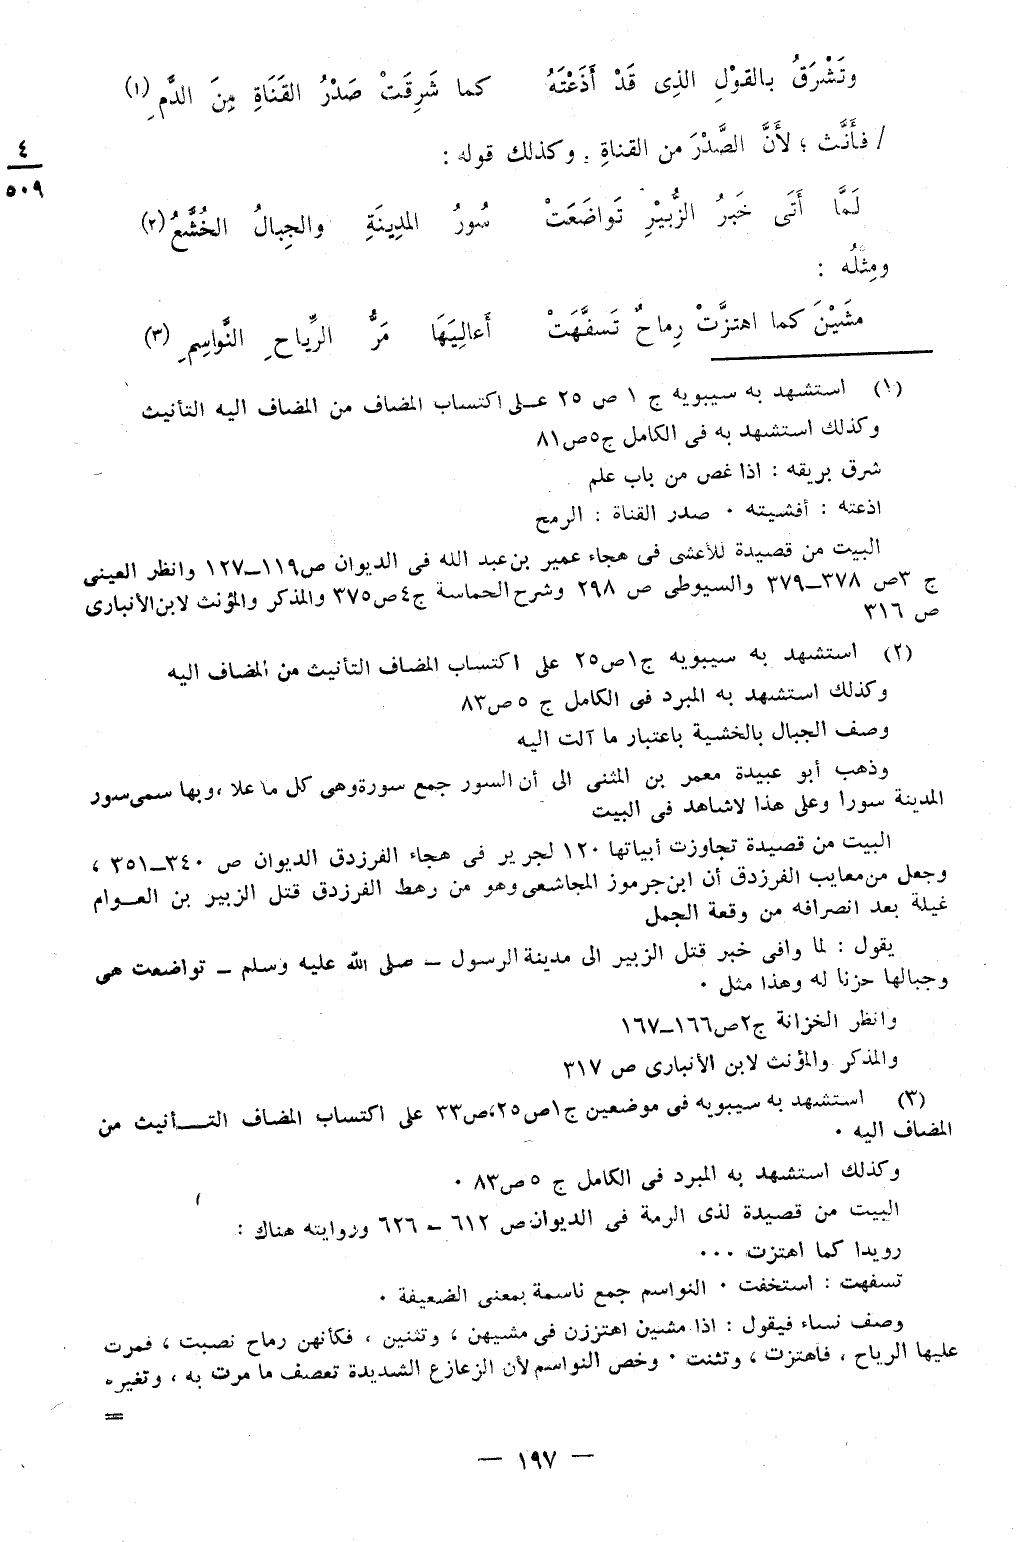 وتَشْرَقُ بالقوْلِ الذِى قَدْ أَذَعْتَهُ كما شَرِقَتْ صَدْرُ القَنَاةِ مِنَ الدَّمِ (١)
/ فأَنَّث ؛ لأَنَّ الصَّدْرَ من القناةِ . وكذلك قوله :
٤
٥٠٩
لَمَّا أَتَى خَبَرُ الزُّبيْرِ تَواضَعَتْ سُورُ المدِينَةِ والجِبالُ الخُشَّعُ (٢)
ومِثْلُه :
مشَيْنَ كما اهتزَّتْ رِماحٌ تَسفَّهَتْ أَعالِيَهَا مَرُّ الرِّياحِ النَّواسِمِ (٣)
(١) استشهد به سيبويه ج ١ ص ٢٥ عـلى اكتساب المضاف من المضاف اليه التأنيث
وكذلك استشهد به فى الكامل ج٥ص٨١
شرق بريقه : اذا غص من باب علم
اذعته : أفشيته ٠ صدر القناة : الرمح
البيت من قصيدة للأعشى فى هجاء عمير بن عبد الله فى الديوان ص١١٩ـ١٢٧ وانظر العينى
ج ٣ص ٣٧٨ـ٣٧٩ والسيوطى ص ٢٩٨ وشرح الحماسة ج٤ص٣٧٥ والمذكر والمؤنث لابن الأنبارى
ص ٣١٦
(٢) استشهد به سيبويه ج١ص٢٥ على اكتساب المضاف التأنيث من المضاف اليه
وكذلك استشهد به المبرد فى الكامل ج ٥ ص٨٣
وصف الجبال بالخشية باعتبار ما آلت اليه
وذهب أبو عبيدة معمر بن المثنى الى أن السور جمع سورة وهى كل ما علا ، وبها سمى سور
المدينة سورا وعلى هذا لا شاهد فى البيت
البيت من قصيدة تجاوزت أبياتها ١٢٠ لجرير فى هجاء الفرزدق الديوان ص ٣٤٠ـ٣٥١ ،
وجعل من معايب الفرزدق أن ابن جرموز المجاشعى وهو من رهط الفرزدق قتل الزبير بن العـوام
غيلة بعد انصرافه من وقعة الجمل
يقول : لما وافى خبر قتل الزبير الى مدينة الرسول ـ صلى الله عليه وسلم ـ تواضعت هى
وجبالها حزنا له وهذا مثل ٠
وانظر الخزانة ج٢ص١٦٦ـ١٦٧
والمذكر والمؤنث لابن الأنبارى ص ٣١٧
(٣) استشهد به سيبويه فى موضعين ج١ص٢٥،ص٣٣ على اكتساب المضاف التـأنيث من
المضاف اليه ٠
وكذلك استشهد به المبرد فى الكامل ج ٥ ص٨٣ ٠
البيت من قصيدة لذى الرمة فى الديوان ص ٦١٢ ـ ٦٢٦ وروايته هناك :
رويدا كما اهتزت ٠٠٠
تسفهت : استخفت ٠ النواسم جمع ناسمة بمعنى الضعيفة ٠
وصف نساء فيقول : اذا مشين اهتززن فى مشيهن ، وتثنين ، فكأنهن رماح نصبت ، فمرت
عليها الرياح ، فاهتزت ، وتثنت ٠ وخص النواسم لأن الزعازع الشديدة تعصف ما مرت به ، وتغيره
=
— ١٩٧ —